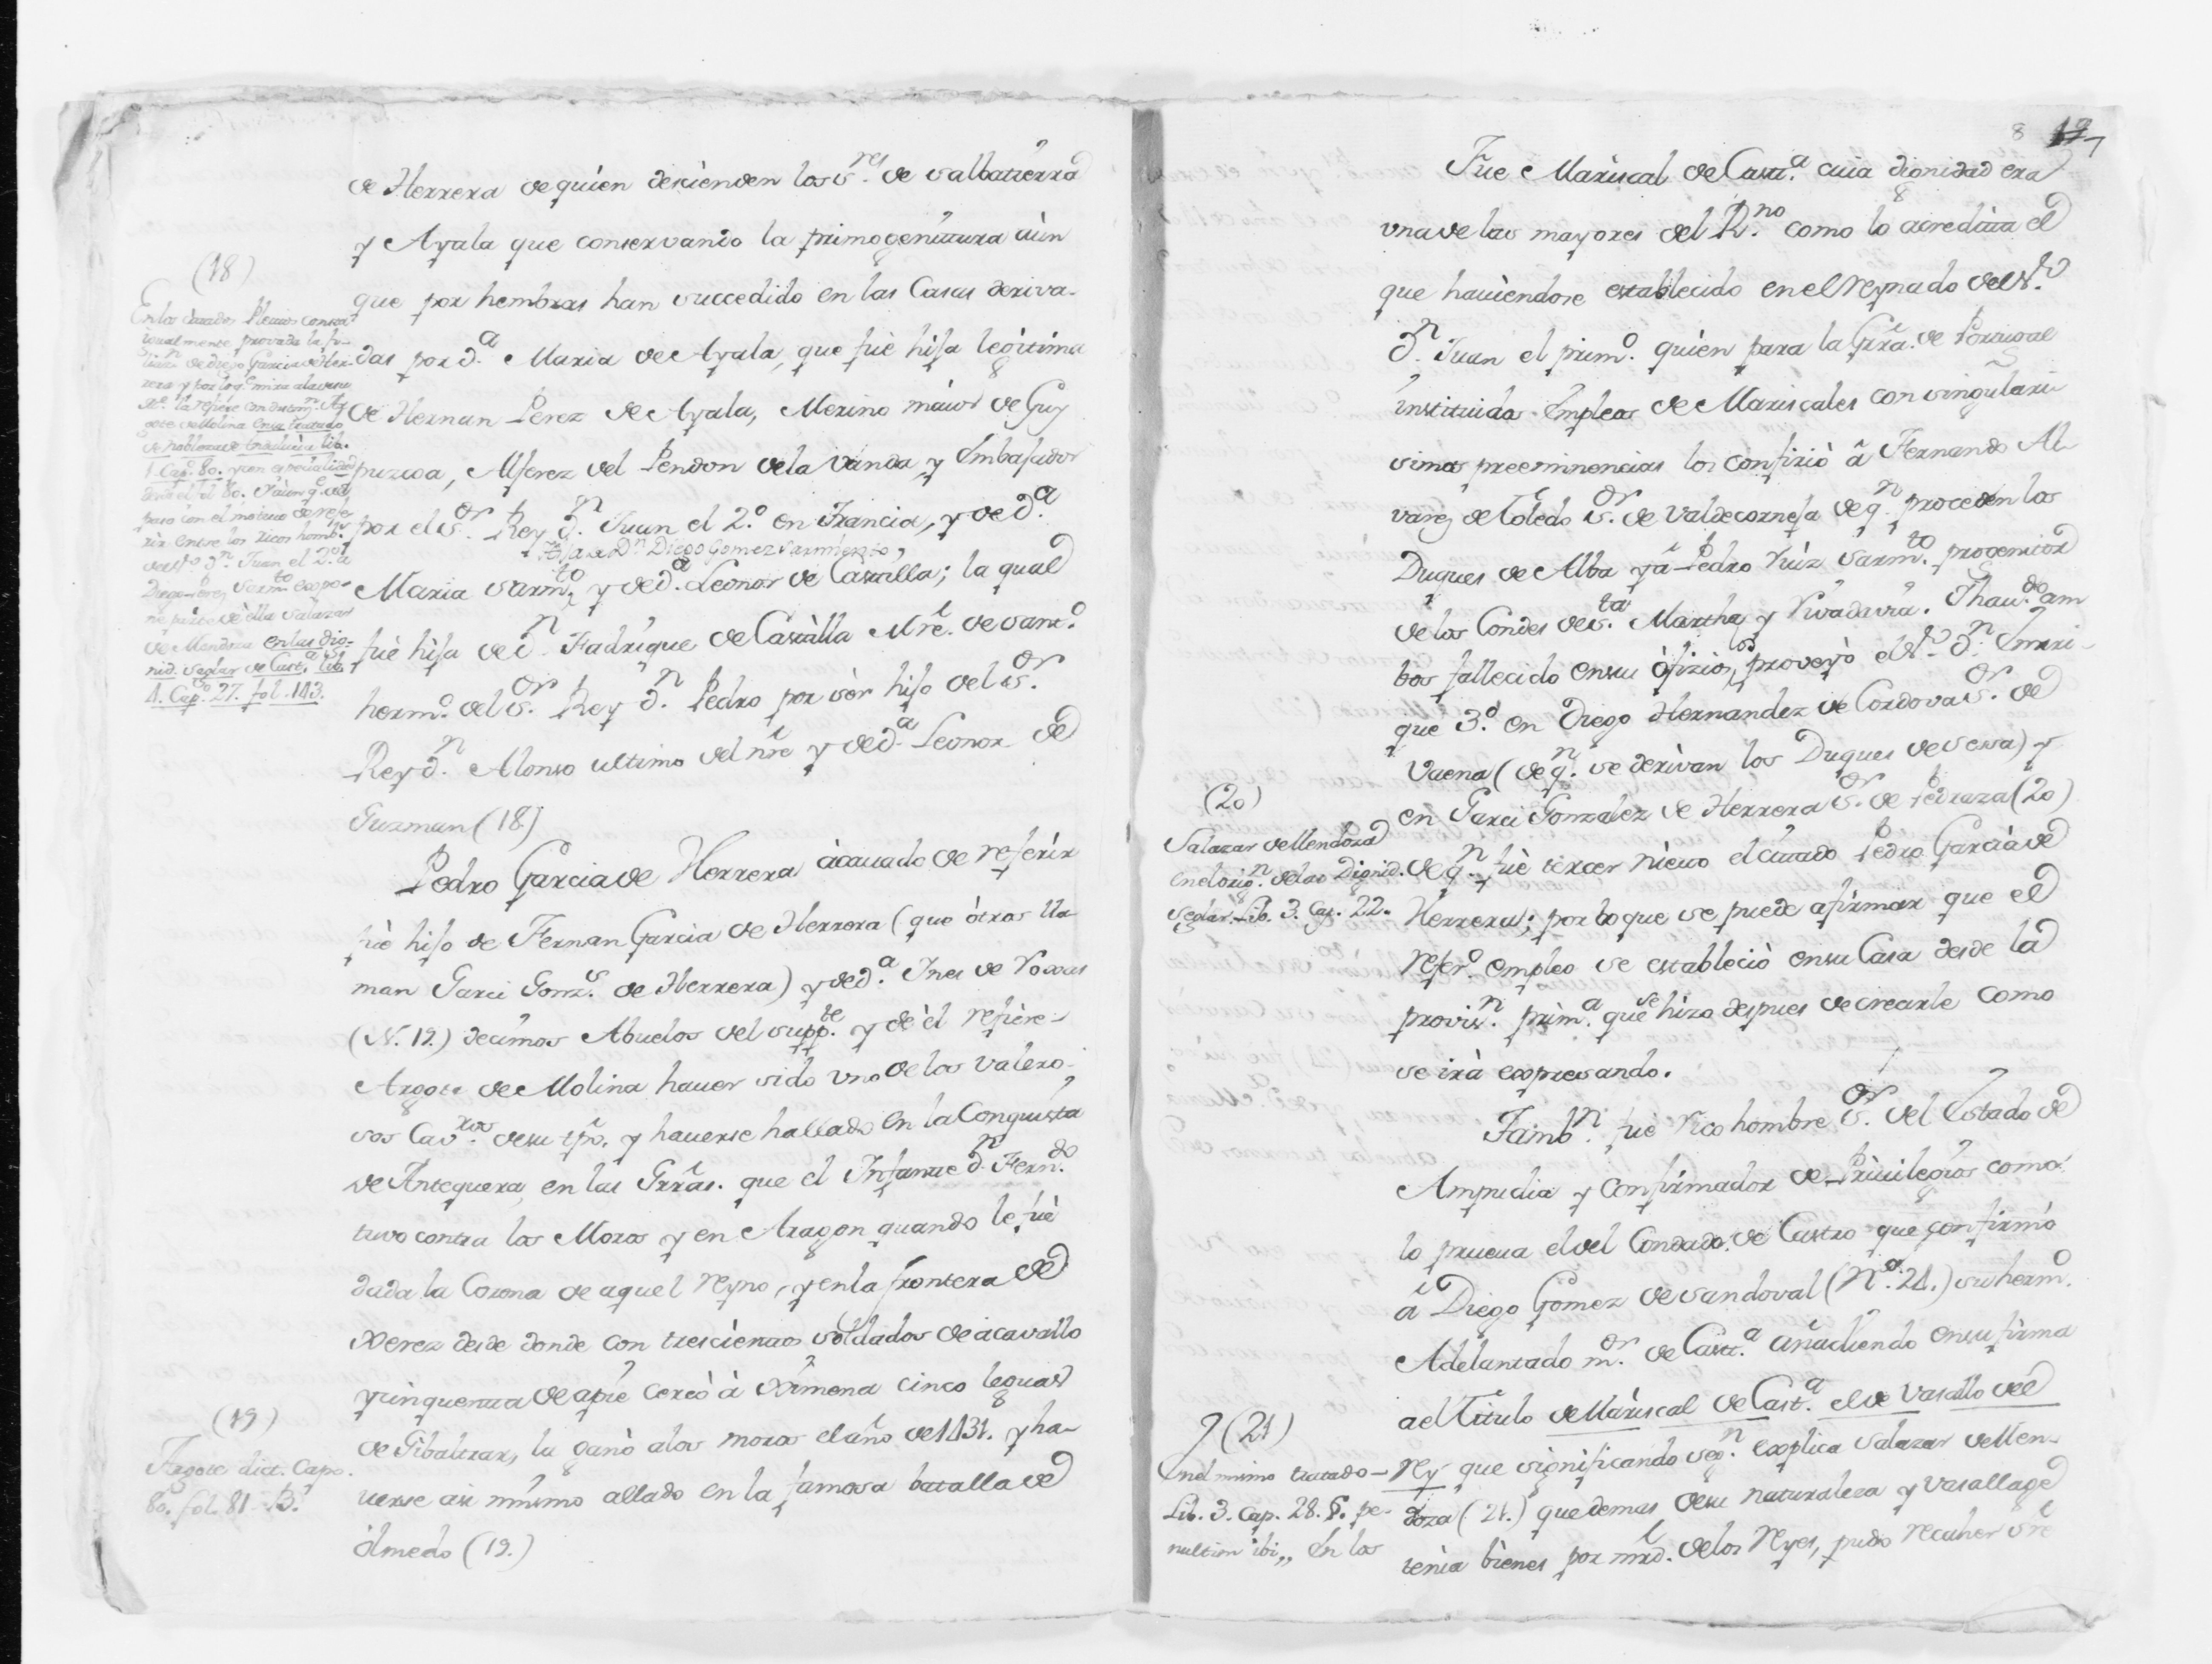 de Herrera de quien descienden los S.res de Salbatierra
y Ayala que conservando la primogenitura aùn
que por hembras han succedido en las Casas deriva-
das por D.a Maria de Ayala, que fuè hija legitima
de Hernan Perez de Ayala, Merino maior de Guy
puzcoa, Alferez del Pendon de la Vanda y Embajador
por el S.or Rey D.n Juan el 2.o en Francia, y de D.a
D.n Diego Gomez Sarmiento,
Maria Sarm.to y de D.a Leonor de Castilla; la qual
fuè hija de D.n Fadrique de Castàlla Mrê. de Sant.o
herm.o del S.or Rey D.n Pedro por sèr hijo del S.or
Rey D.n Alonso ultimo del nrê y de D.a Leonor de
Guzman (18)
(18)
En los citados Pleitos
igualmente provada la fi-
de Diego Garcia de Her-
rera y por lo q.e mira
la refiere
gote de Molina en su tratado
de Nobleza de Andalucia lib.
1. Cap. 80. y en especialidad
fol. 80.
paro con el motivo de refe-
rir entre los ricos homb.s
del S.or D.n Juan el 2.o à
Diego Perez Sarm.to expo-
ne parte de ella Salazar
de Mendoza en las dig-
nid. Seglar de Cast.a lib.
4. Cap.o 27. fol. 143.
Pedro Garcia de Herrera acauado de referir
fuè hijo de Fernan Garcia de Herrera (que òtros lla-
man Garci Gonz.s de Herrera) y de D.a Ines de Roxas
(N. 12.) decimos Abuelos del Supp.te y de èl refiere
Argote de Molina hauer sido vno de los valero-
sos Cav.ros de su tpô. y hauerse hallado en la Conquista
de Antequera, en las Grrâs. que el Infante D.n Fern.do
tuvo contra los Moros y en Aragon quando le fuè
dada la Corona de aquel reyno, y en la frontera de
Xerez desde donde con trescientos soldados de à cavallo
y cinquenta de apie cercò à Ximena cinco leguas
de Gibaltrar, la ganò a los moros el año de 1431. y ha-
uerse asi mismo allado en la famosa batalla de
òlmedo (19.)
(19)
Argote dict. Cap.
80. fol. 81. B.
8 7
Fue Mariscal de Cast.a cuia dignidad era
vna de las mayores del R.no como lo acredita el
que haviendose establecido en el reynado del S.or
D.n Juan el prim.o quien para la Grrâ. de Portugal
instituidos Empleos de Mariscales con singulari-
simas preeminencias los confiriò â Fernando Al-
varez de Toledo S.or de Valdecorneja de q.n proceden los
Duques de Alba y â Pedro Ruiz Sarm.to progenitor
de los Condes de S.ta Martha y Rivadavia. I hau.do am
bos fallecido en su òfizio, los proveyò el S.or D.n Enrri-
que 3.o en Diego Hernandez de Cordova S.or de
Vaena (de q.n se derivan los Duques de Sessa) y
en Garci Gonzalez de Herrera S.or de Pedraza (20)
de q.n fuè tercer nieto el citado Pedro Garcia de
Herrera; por lo que se puede afirmar que el
refer.o empleo se estableciò en su Casa desde la
provis.n prim.a que se hizo despues de crearle como
se irà expresando.
(20)
Salazar de Mendoza
en el orig.n de las Dignid.
Seglar. Lib. 3. Cap. 22.
Tamb.n fuè rico hombre S.or del Estado de
Ampudia y confirmador de Priuilegios como
lo prueua el del Condado de Castro que confirmò
â Diego Gomez de Sandoval (N.o 24.) su herm.o
Adelantado m.or de Cast.a añadiendo en su firma
al Titulo de Mariscal de Cast.a el de Vasallo del
Rey que significando seg.n explica Salazar de Men-
doza (21.) que demas de su naturaleza y vasallage
tenia bienes por mrd. de los Reyes, pudo recaher
(21)
En el mismo tratado
Lib. 3. Cap. 28. §. pe-
nultim ibi,, En los